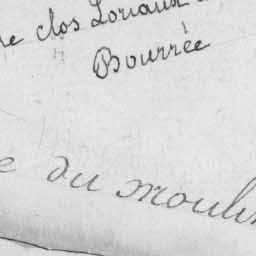 e clos Loriaux
Bourrée
e du moulin